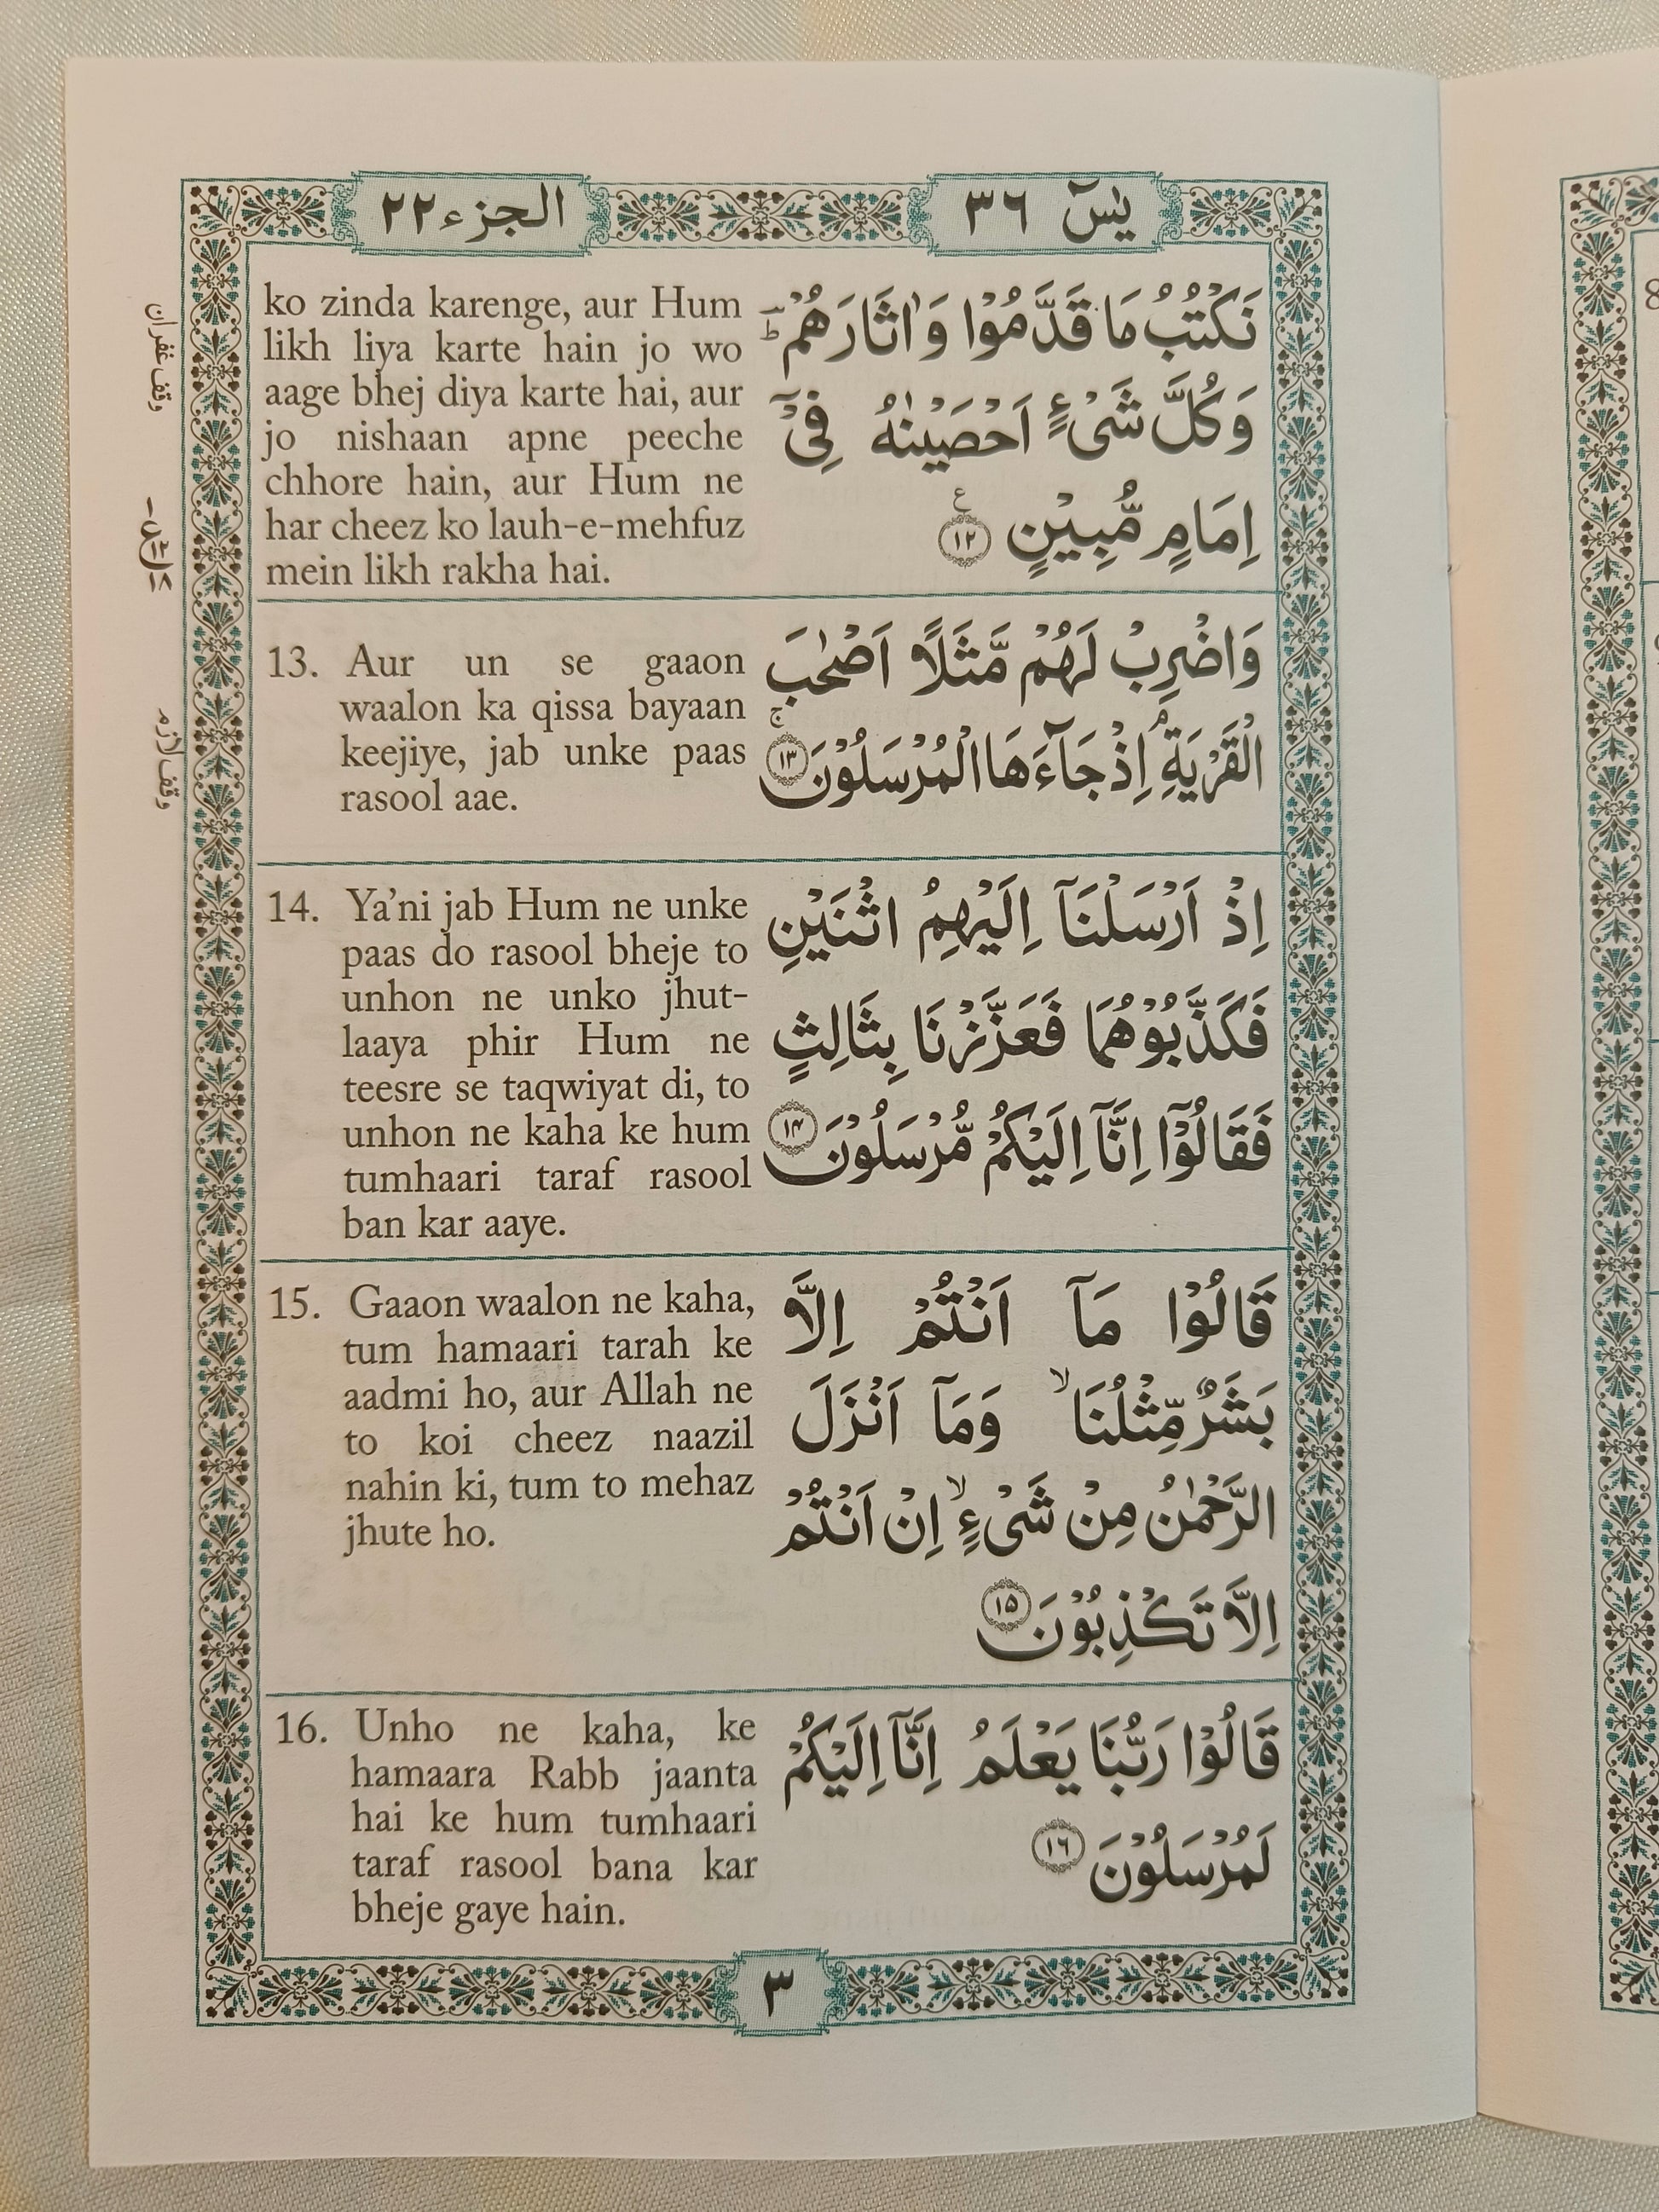 الجزء ٢٢
يٰسٓ ٣٦
ko zinda karenge, aur Hum
likh liya karte hain jo wo
aage bhej diya karte hai, aur
jo nishaan apne peeche
chhore hain, aur Hum ne
har cheez ko lauh-e-mehfuz
mein likh rakha hai.
نَكْتُبُ مَا قَدَّمُوْا وَاٰثَارَهُمْ ؕ
وَكُلَّ شَىْءٍ اَحْصَيْنٰهُ فِىْۤ
اِمَامٍ مُّبِيْنٍ ۧ ١٢
13. Aur un se gaaon
waalon ka qissa bayaan
keejiye, jab unke paas
rasool aae.
وَاضْرِبْ لَهُمْ مَّثَلًا اَصْحٰبَ
الْقَرْيَةِ ۘ اِذْ جَآءَهَا الْمُرْسَلُوْنَ ۚ ١٣
14. Ya’ni jab Hum ne unke
paas do rasool bheje to
unhon ne unko jhut-
laaya phir Hum ne
teesre se taqwiyat di, to
unhon ne kaha ke hum
tumhaari taraf rasool
ban kar aaye.
اِذْ اَرْسَلْنَاۤ اِلَيْهِمُ اثْنَيْنِ
فَكَذَّبُوْهُمَا فَعَزَّزْنَا بِثَالِثٍ
فَقَالُوْۤا اِنَّاۤ اِلَيْكُمْ مُّرْسَلُوْنَ ١٤
15. Gaaon waalon ne kaha,
tum hamaari tarah ke
aadmi ho, aur Allah ne
to koi cheez naazil
nahin ki, tum to mehaz
jhute ho.
قَالُوْا مَاۤ اَنْتُمْ اِلَّا
بَشَرٌ مِّثْلُنَا ۙ وَمَاۤ اَنْزَلَ
الرَّحْمٰنُ مِنْ شَىْءٍ ۙ اِنْ اَنْتُمْ
اِلَّا تَكْذِبُوْنَ ١٥
16. Unho ne kaha, ke
hamaara Rabb jaanta
hai ke hum tumhaari
taraf rasool bana kar
bheje gaye hain.
قَالُوْا رَبُّنَا يَعْلَمُ اِنَّاۤ اِلَيْكُمْ
لَمُرْسَلُوْنَ ١٦
٣
وقف غفران
وقف لازم
8